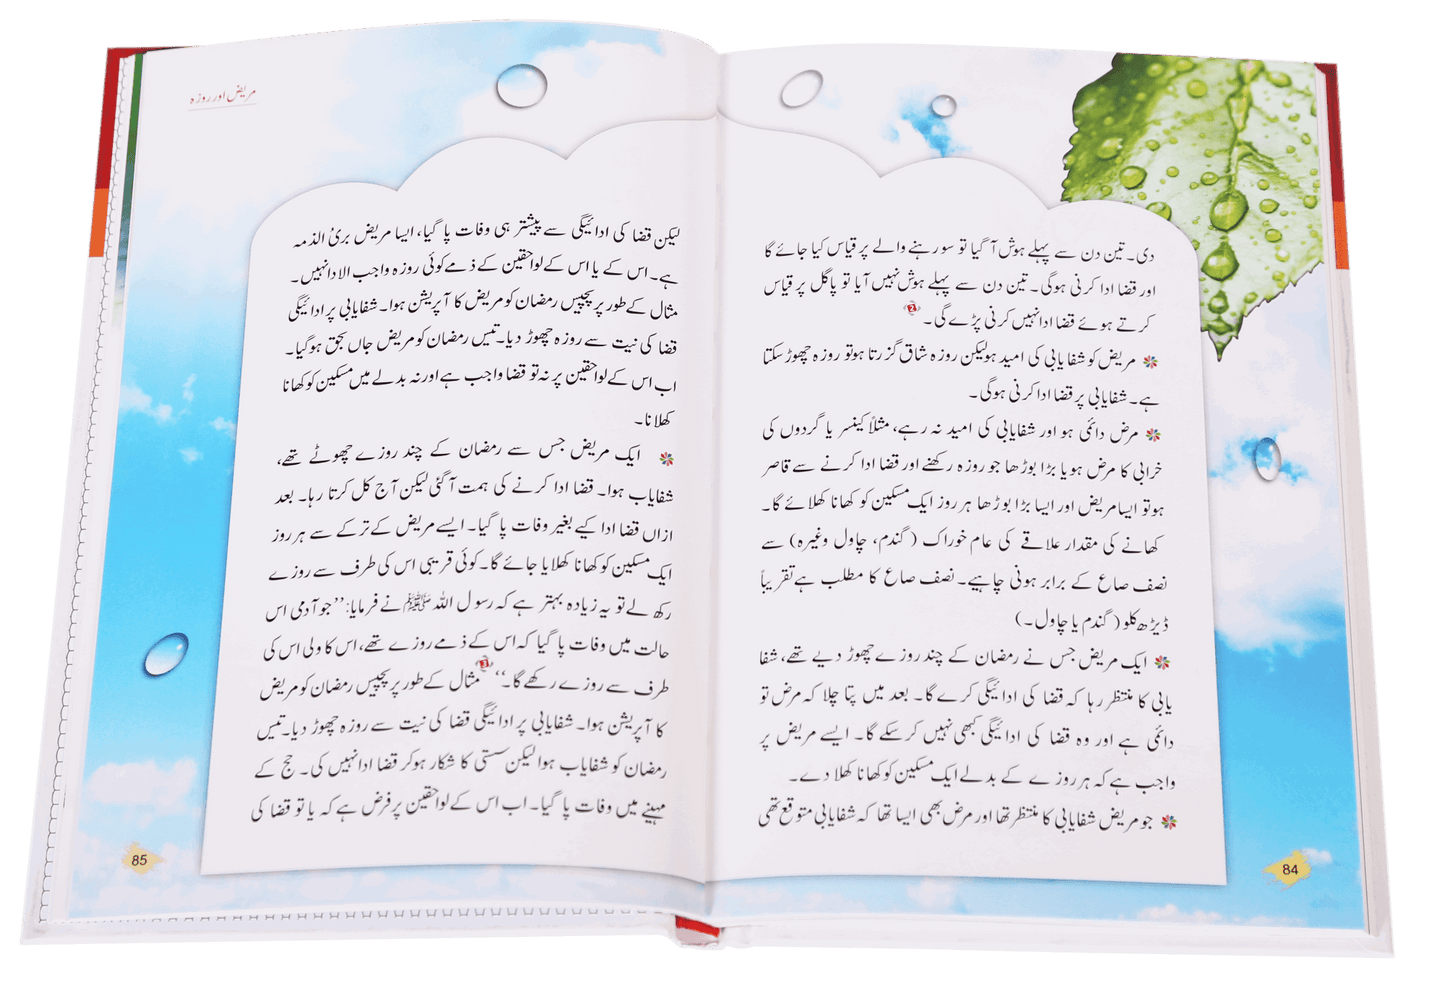 دی۔ تین دن سے پہلے ہوش آ گیا تو سو رہنے والے پر قیاس کیا جائے گا
اور قضا ادا کرنی ہوگی۔ تین دن سے پہلے ہوش نہیں آیا تو پاگل پر قیاس
کرتے ہوئے قضا ادا نہیں کرنی پڑے گی۔ 2
مریض کو شفایابی کی امید ہو لیکن روزہ شاق گزرتا ہو تو روزہ چھوڑ سکتا
ہے۔ شفایابی پر قضا ادا کرنی ہوگی۔
مرض دائمی ہو اور شفایابی کی امید نہ رہے، مثلاً کینسر یا گردوں کی
خرابی کا مرض ہو یا بڑا بوڑھا جو روزہ رکھنے اور قضا ادا کرنے سے قاصر
ہو تو ایسا مریض اور ایسا بڑا بوڑھا ہر روز ایک مسکین کو کھانا کھلائے گا۔
کھانے کی مقدار علاقے کی عام خوراک (گندم، چاول وغیرہ) سے
نصف صاع کے برابر ہونی چاہیے۔ نصف صاع کا مطلب ہے تقریباً
ڈیڑھ کلو (گندم یا چاول۔)
ایک مریض جس نے رمضان کے چند روزے چھوڑ دیے تھے، شفا
یابی کا منتظر رہا کہ قضا کی ادائیگی کرے گا۔ بعد میں پتا چلا کہ مرض تو
دائمی ہے اور وہ قضا کی ادائیگی کبھی نہیں کر سکے گا۔ ایسے مریض پر
واجب ہے کہ ہر روزے کے بدلے ایک مسکین کو کھانا کھلا دے۔
جو مریض شفایابی کا منتظر تھا اور مرض بھی ایسا تھا کہ شفایابی متوقع تھی
84
مریض اور روزہ
لیکن قضا کی ادائیگی سے پیشتر ہی وفات پا گیا، ایسا مریض بریٔ الذمہ
ہے۔ اس کے یا اس کے لواحقین کے ذمے کوئی روزہ واجب الادا نہیں۔
مثال کے طور پر پچیس رمضان کو مریض کا آپریشن ہوا۔ شفایابی پر ادائیگی
قضا کی نیت سے روزہ چھوڑ دیا۔ تیس رمضان کو مریض جاں بحق ہوگیا۔
اب اس کے لواحقین پر نہ تو قضا واجب ہے اور نہ بدلے میں مسکین کو کھانا
کھلانا۔
ایک مریض جس سے رمضان کے چند روزے چھوٹے تھے،
شفایاب ہوا۔ قضا ادا کرنے کی ہمت آ گئی لیکن آج کل کرتا رہا۔ بعد
ازاں قضا ادا کیے بغیر وفات پا گیا۔ ایسے مریض کے ترکے سے ہر روز
ایک مسکین کو کھانا کھلایا جائے گا۔ کوئی قریبی اس کی طرف سے روزے
رکھ لے تو یہ زیادہ بہتر ہے کہ رسول اللہ ﷺ نے فرمایا: ’’جو آدمی اس
حالت میں وفات پا گیا کہ اس کے ذمے روزے تھے، اس کا ولی اس کی
طرف سے روزے رکھے گا۔‘‘ 3 مثال کے طور پر پچیس رمضان کو مریض
کا آپریشن ہوا۔ شفایابی پر ادائیگی قضا کی نیت سے روزہ چھوڑ دیا۔ تیس
رمضان کو شفایاب ہوا لیکن سستی کا شکار ہو کر قضا ادا نہیں کی۔ حج کے
مہینے میں وفات پا گیا۔ اب اس کے لواحقین پر فرض ہے کہ یا تو قضا کی
85